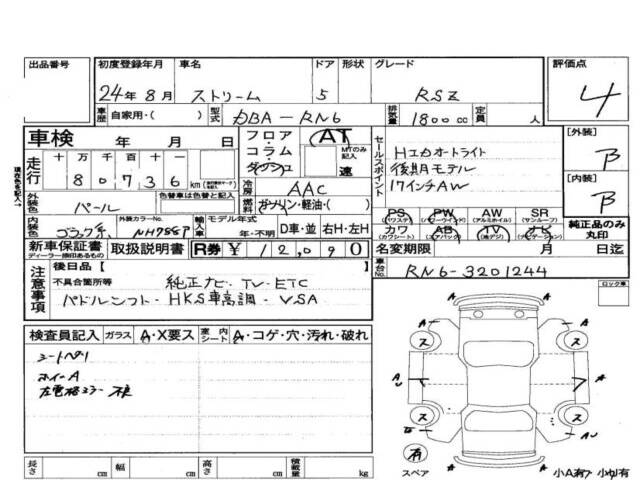 出品番号 初度登録年月 車名 ドア 形状 グレード 評価点
24年8月 ストリーム 5 RSZ 4
車歴 自家用・( ) 型式 DBA-RN6 排気量 1800cc 定員 人
車検 年 月 日
フロア・コラム・ダッシュ
AT
MTのみ記入
速
セールスポイント
HIDオートライト
後期モデル
17インチAW
[外装] B
[内装] B
走行 十 万 千 百 十 一
80736 km
冷房 AAC
燃料 ガソリン・軽油・( )
外装色 パール
色替車は色替と記入
内装色
外装カラーNo. NH788P
輸入車 モデル年式 年・不明 D車・並 右H・左H
PS (パワステ) PW (パワーウインド) AW (アルミホイル) SR (サンルーフ)
カワ (カワシート) AB (エアバック) TV (地デジ) ナビ (ナビゲーション)
純正品のみ丸印
新車保証書 取扱説明書 R券 ¥12,090
ディーラー捺印あるもの
名変期限 月 日迄
車台No. RN6-3201244
注意事項
後日品[ ]
不具合箇所等
純正ナビ・TV・ETC
パドルシフト・HKS車高調・VSA
検査員記入 ガラス A・X要ス 室内シート A・コゲ・穴・汚れ・破れ
ホイールA
左電格ミラー
ロック車
A A
ス ス
A A
ス ス
有
スペア
長さ cm 幅 cm 高さ cm 積載量 kg